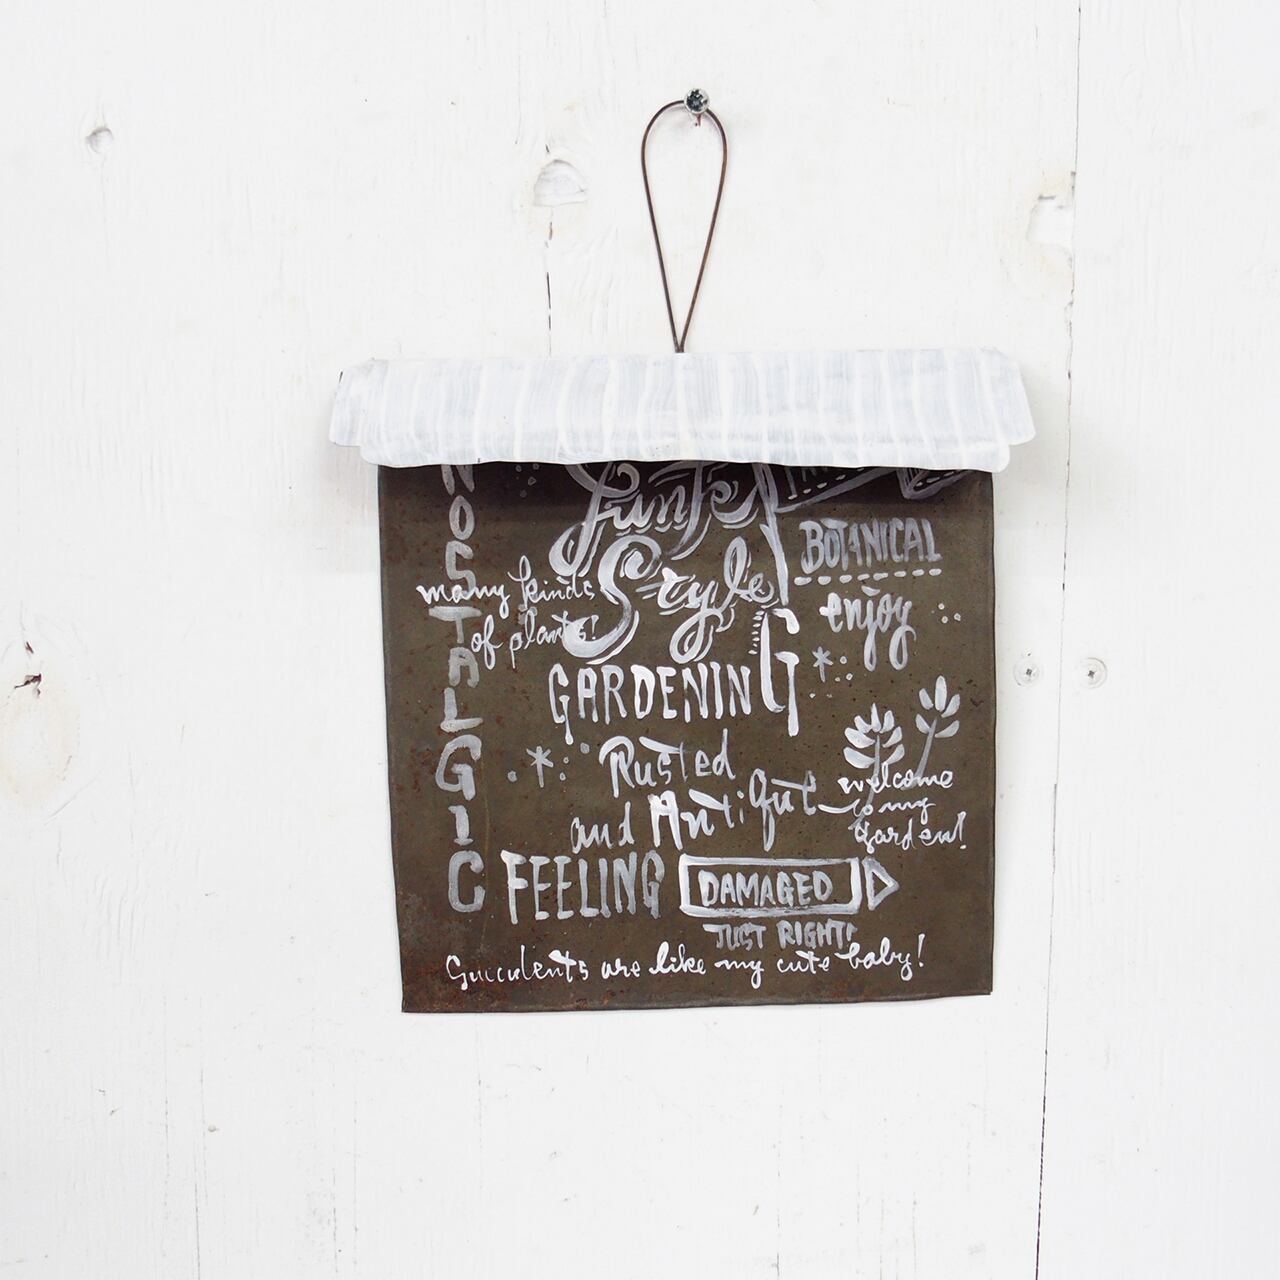 NOSTALGIC
Junk
Style
BOTANICAL
many kinds
of plants!
enjoy
GARDENING
Rusted
and Antiqut
welcome
to my
garden!
FEELING
DAMAGED
JUST RIGHT!
Succulents are like my cute baby!